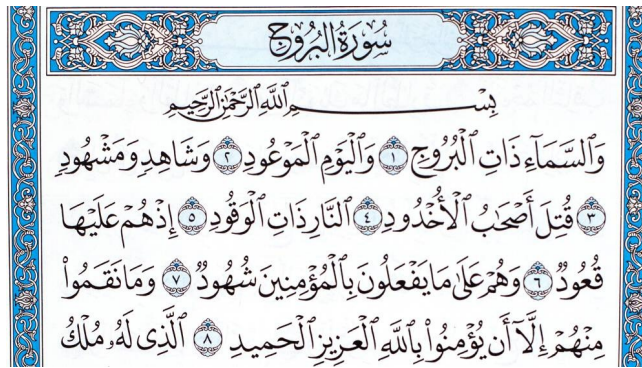 سُورَةُ الْبُرُوجِ
بِسْمِ اللَّهِ الرَّحْمَٰنِ الرَّحِيمِ
وَالسَّمَاءِ ذَاتِ الْبُرُوجِ ١ وَالْيَوْمِ الْمَوْعُودِ ٢ وَشَاهِدٍ وَمَشْهُودٍ
٣ قُتِلَ أَصْحَٰبُ الْأُخْدُودِ ٤ النَّارِ ذَاتِ الْوَقُودِ ٥ إِذْ هُمْ عَلَيْهَا
قُعُودٌ ٦ وَهُمْ عَلَىٰ مَا يَفْعَلُونَ بِالْمُؤْمِنِينَ شُهُودٌ ٧ وَمَا نَقَمُوا
مِنْهُمْ إِلَّا أَن يُؤْمِنُوا بِاللَّهِ الْعَزِيزِ الْحَمِيدِ ٨ الَّذِي لَهُ مُلْكُ